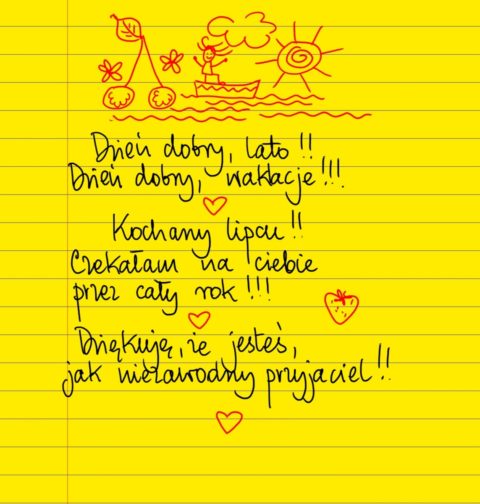 Dzień dobry, lato!!
Dzień dobry, wakacje!!!
Kochany lipcu!!
Czekałam na ciebie
przez cały rok!!!
Dziękuję, że jesteś,
jak niezawodny przyjaciel!!